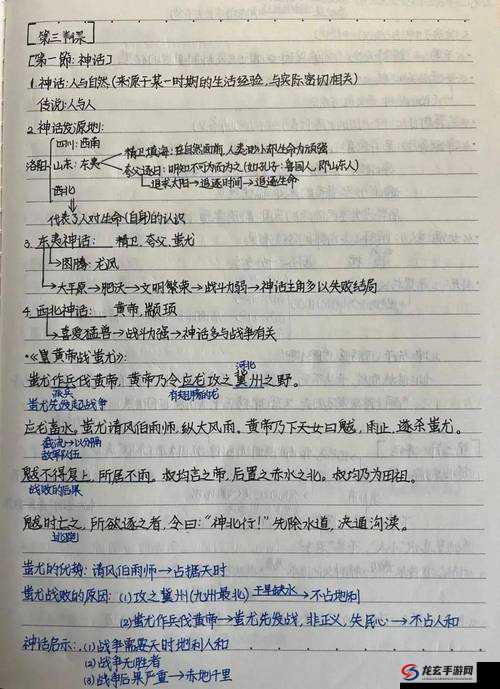 [第一節:神话]
1.神话:人与自然(来源于某一时期的生活经验,与实际密切相关)
传说:人与人
2.神话发源地:
四川:西南
洛阳 山东:东夷
精卫填海:在自然面前,人类渺小却生命力顽强
夸父逐日:明知不可为而为之(如孔子:鲁国人,即山东人)
追求太阳→追逐时间→追逐生命
西北
代表了人对生命(自身)的认识
3. 东夷神话: 精卫、夸父、蚩尤
图腾:龙凤
大平原→肥沃→文明繁荣→战斗力弱→神话主角多以失败结局
4.西北神话: 黄帝、颛顼
喜爱猛兽→战斗力强→神话多与战争有关
·《黄帝战蚩尤》:
河北
蚩尤作兵伐黄帝,黄帝乃令应龙攻之冀州之野。
蚩尤先发起战争
应龙畜水。蚩尤请风伯雨师,纵大风雨。黄帝乃下天女曰魃,雨止,遂杀蚩尤。
魃不得复上,所居不雨。叔均言之帝,后置之赤水之北。叔均乃为田祖。
战败的后果
魃时亡之,所欲逐之者,令曰:“神北行!”先除水道,决通沟渎。
逃跑
蚩尤的优势:请风伯雨师→占据天时
蚩尤战败的原因:(1)攻之冀州(九州最北) 干旱缺水→不占地利
(2)蚩尤作兵伐黄帝→蚩尤先发战,非正义,失民心→不占人和
神话启示:(1)战争需要天时地利人和
(2)战争无胜者
(3)战争后果严重→赤地千里
龙玄手游网